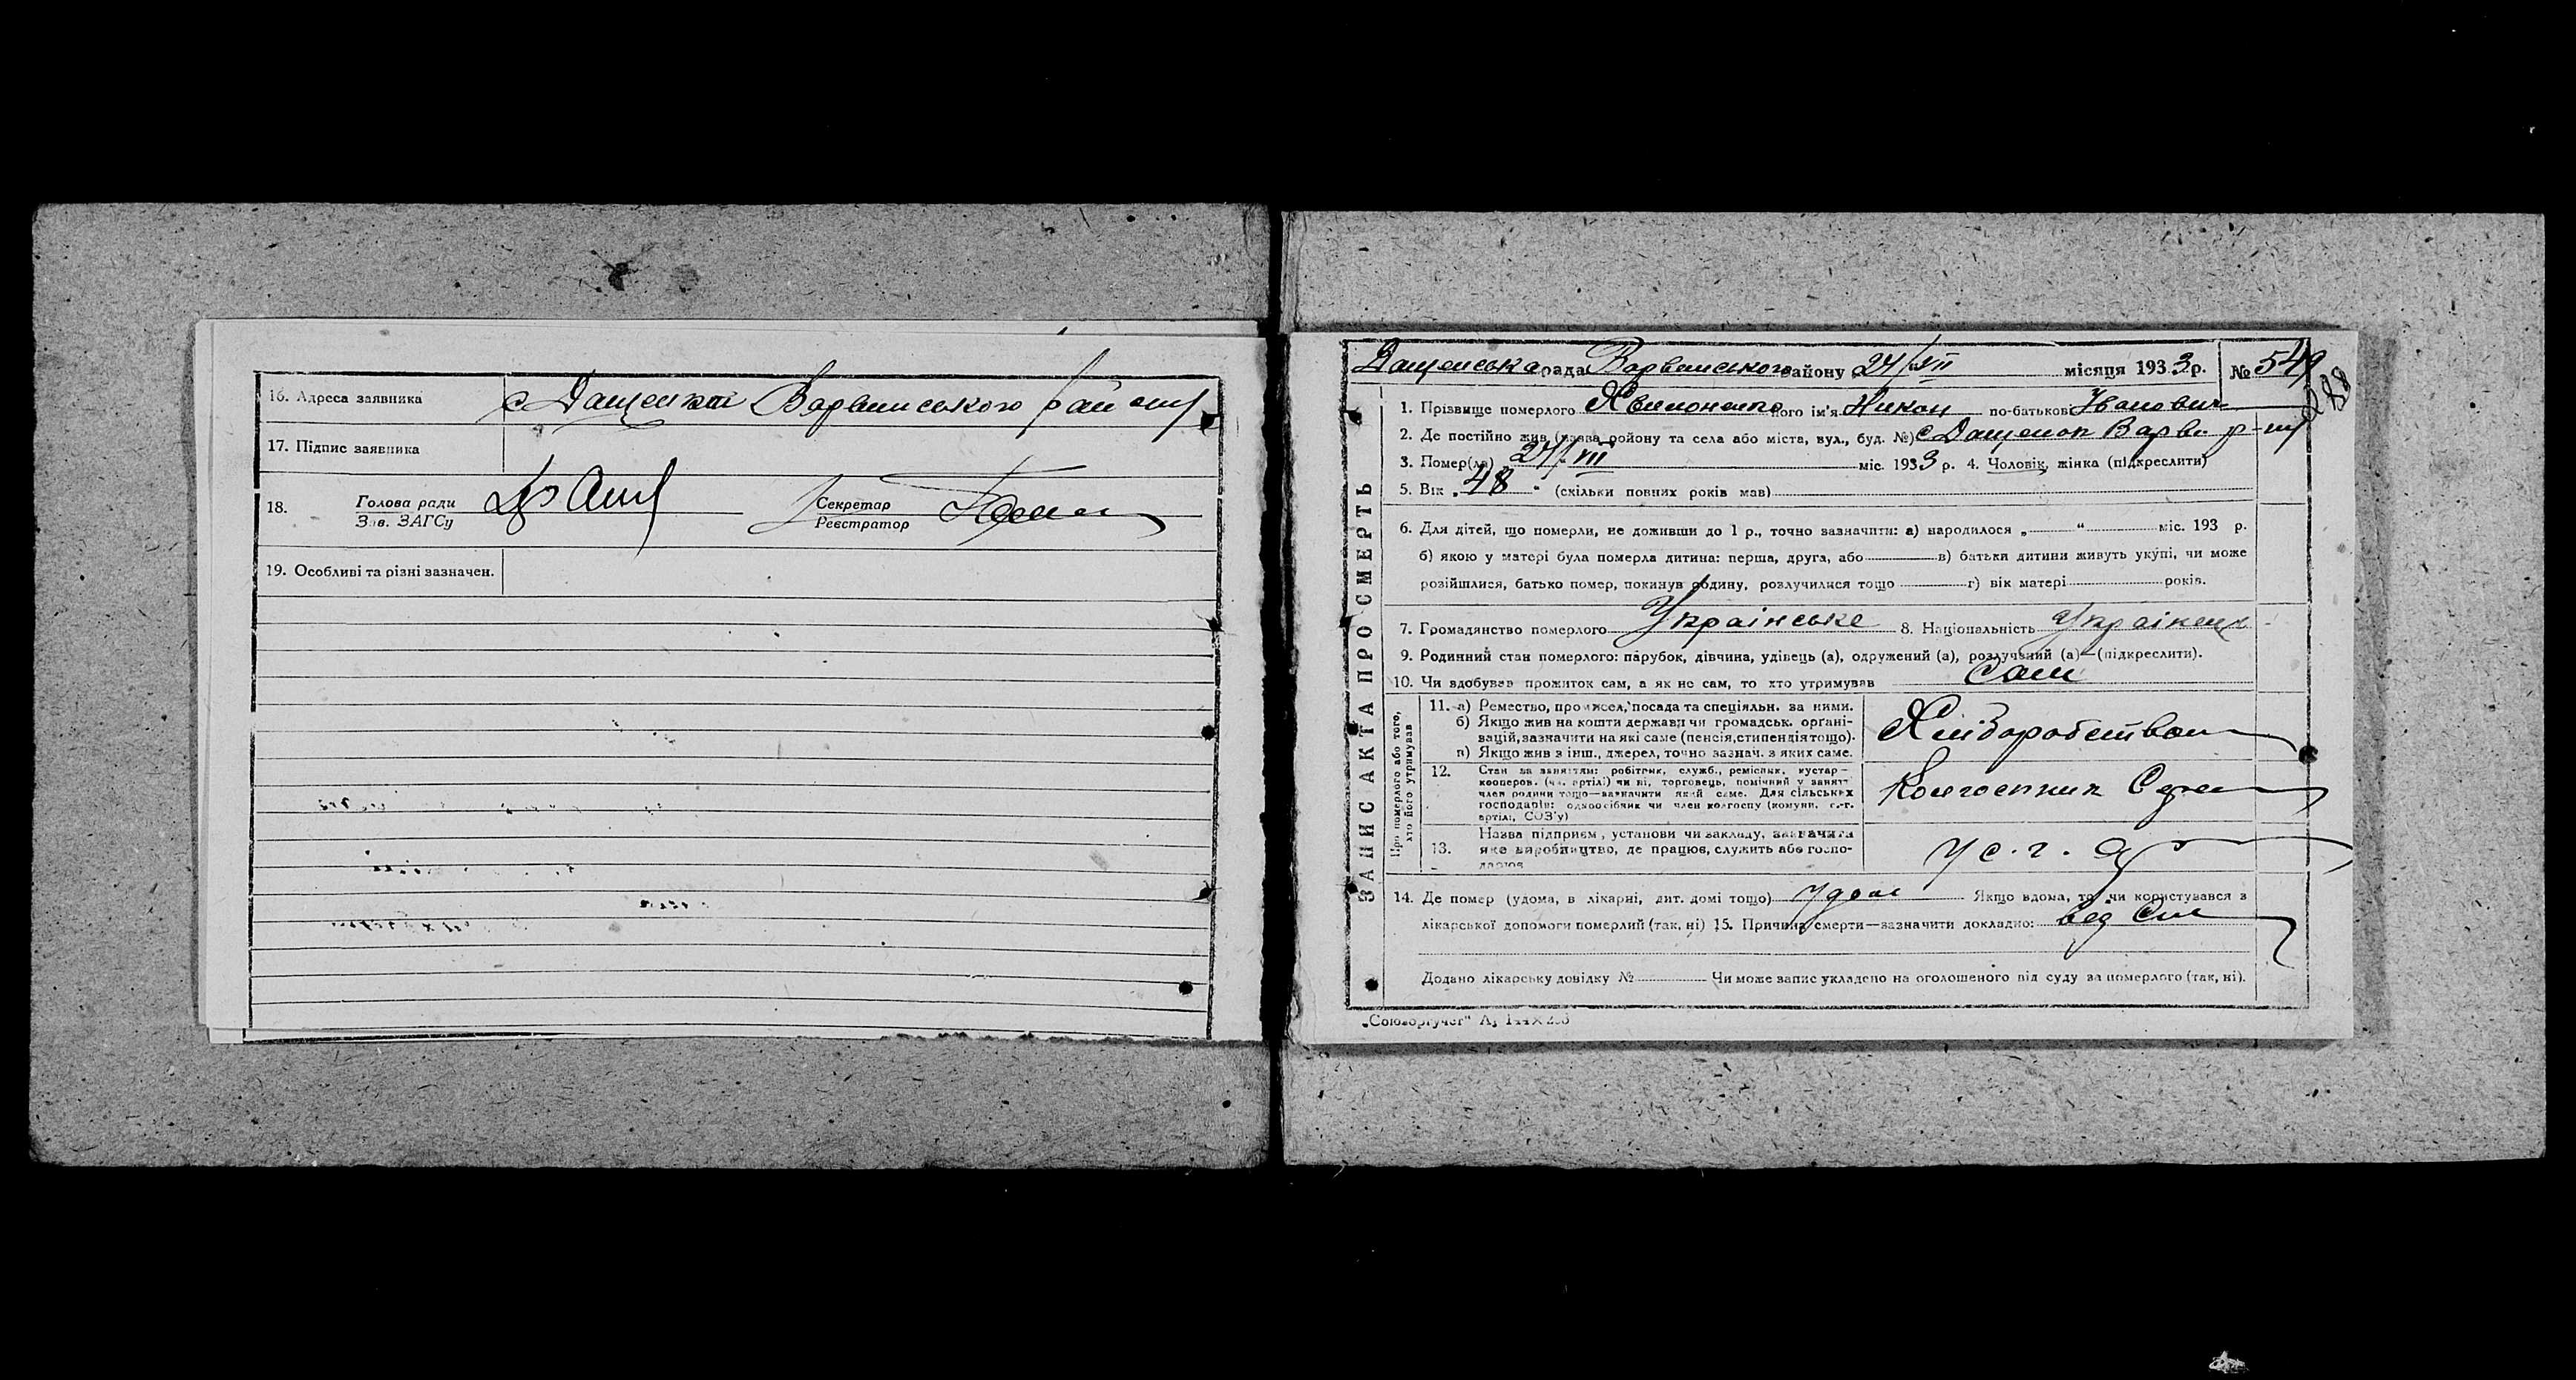 16. Адреса заявника с Дащенки Варвинського району
17. Підпис заявника
18. Голова ради
Зав. ЗАГСу
Секретар
Реєстратор
19. Особливі та різні зазначен.
ЗАПИС АКТА ПРО СМЕРТЬ
Дащенська рада Варвинського району 24/VII місяця 1933 р. № 549
288
1. Прізвище померлого його ім'я Никон по-батькові Іванович
2. Де постійно жив (назва району та села або міста, вул., буд. №) с Дащенок Варв. р-ну
3. Помер(ла) 24/VII міс. 1933 р. 4. Чоловік, жінка (підкреслити)
5. Вік „48“ (скільки повних років мав)
6. Для дітей, що померли, не доживши до 1 р., точно зазначити: а) народилося „ “ міс. 193 р.
б) якою у матері була померла дитина: перша, друга, або в) батьки дитини живуть укупі, чи може
розійшлися, батько помер, покинув родину, розлучилися тощо г) вік матері років.
7. Громадянство померлого Українське 8. Національність Українець
9. Родинний стан померлого: парубок, дівчина, удівець (а), одружений (а), розлучений (а)—(підкреслити).
10. Чи здобував прожиток сам, а як не сам, то хто утримував Сам
Про померлого або того,
хто його утримував
11. а) Ремество, промисел, посада та спеціяльн. за ними.
б) Якщо жив на кошти держави чи громадськ. органі-
зацій, зазначити на які саме (пенсія, стипендія тощо).
в) Якщо жив з інш., джерел, точно зазнач. з яких саме.
Хліборобством
12. Стан за заняттям: робітник, служб., ремісник, кустар—
кооперов. (чл. артілі) чи ні, торговець, помічний у занятт
член родини тощо—зазначити який саме. Для сільських
господарів: одноосібник чи член колгоспу (комуни, с.-г.
артілі, СОЗ'у)
Колгоспник
13. Назва підприєм., установи чи закладу, зазначити
яке виробництво, де працює, служить або госпо-
дарює
у с. г.
14. Де помер (удома, в лікарні, дит. домі тощо) удома Якщо вдома, то чи користувався з
лікарської допомоги померлий (так, ні) 15. Причина смерти—зазначити докладно:
Додано лікарську довідку № Чи може запис укладено на оголошеного від суду за померлого (так, ні).
„Союзоргучет“